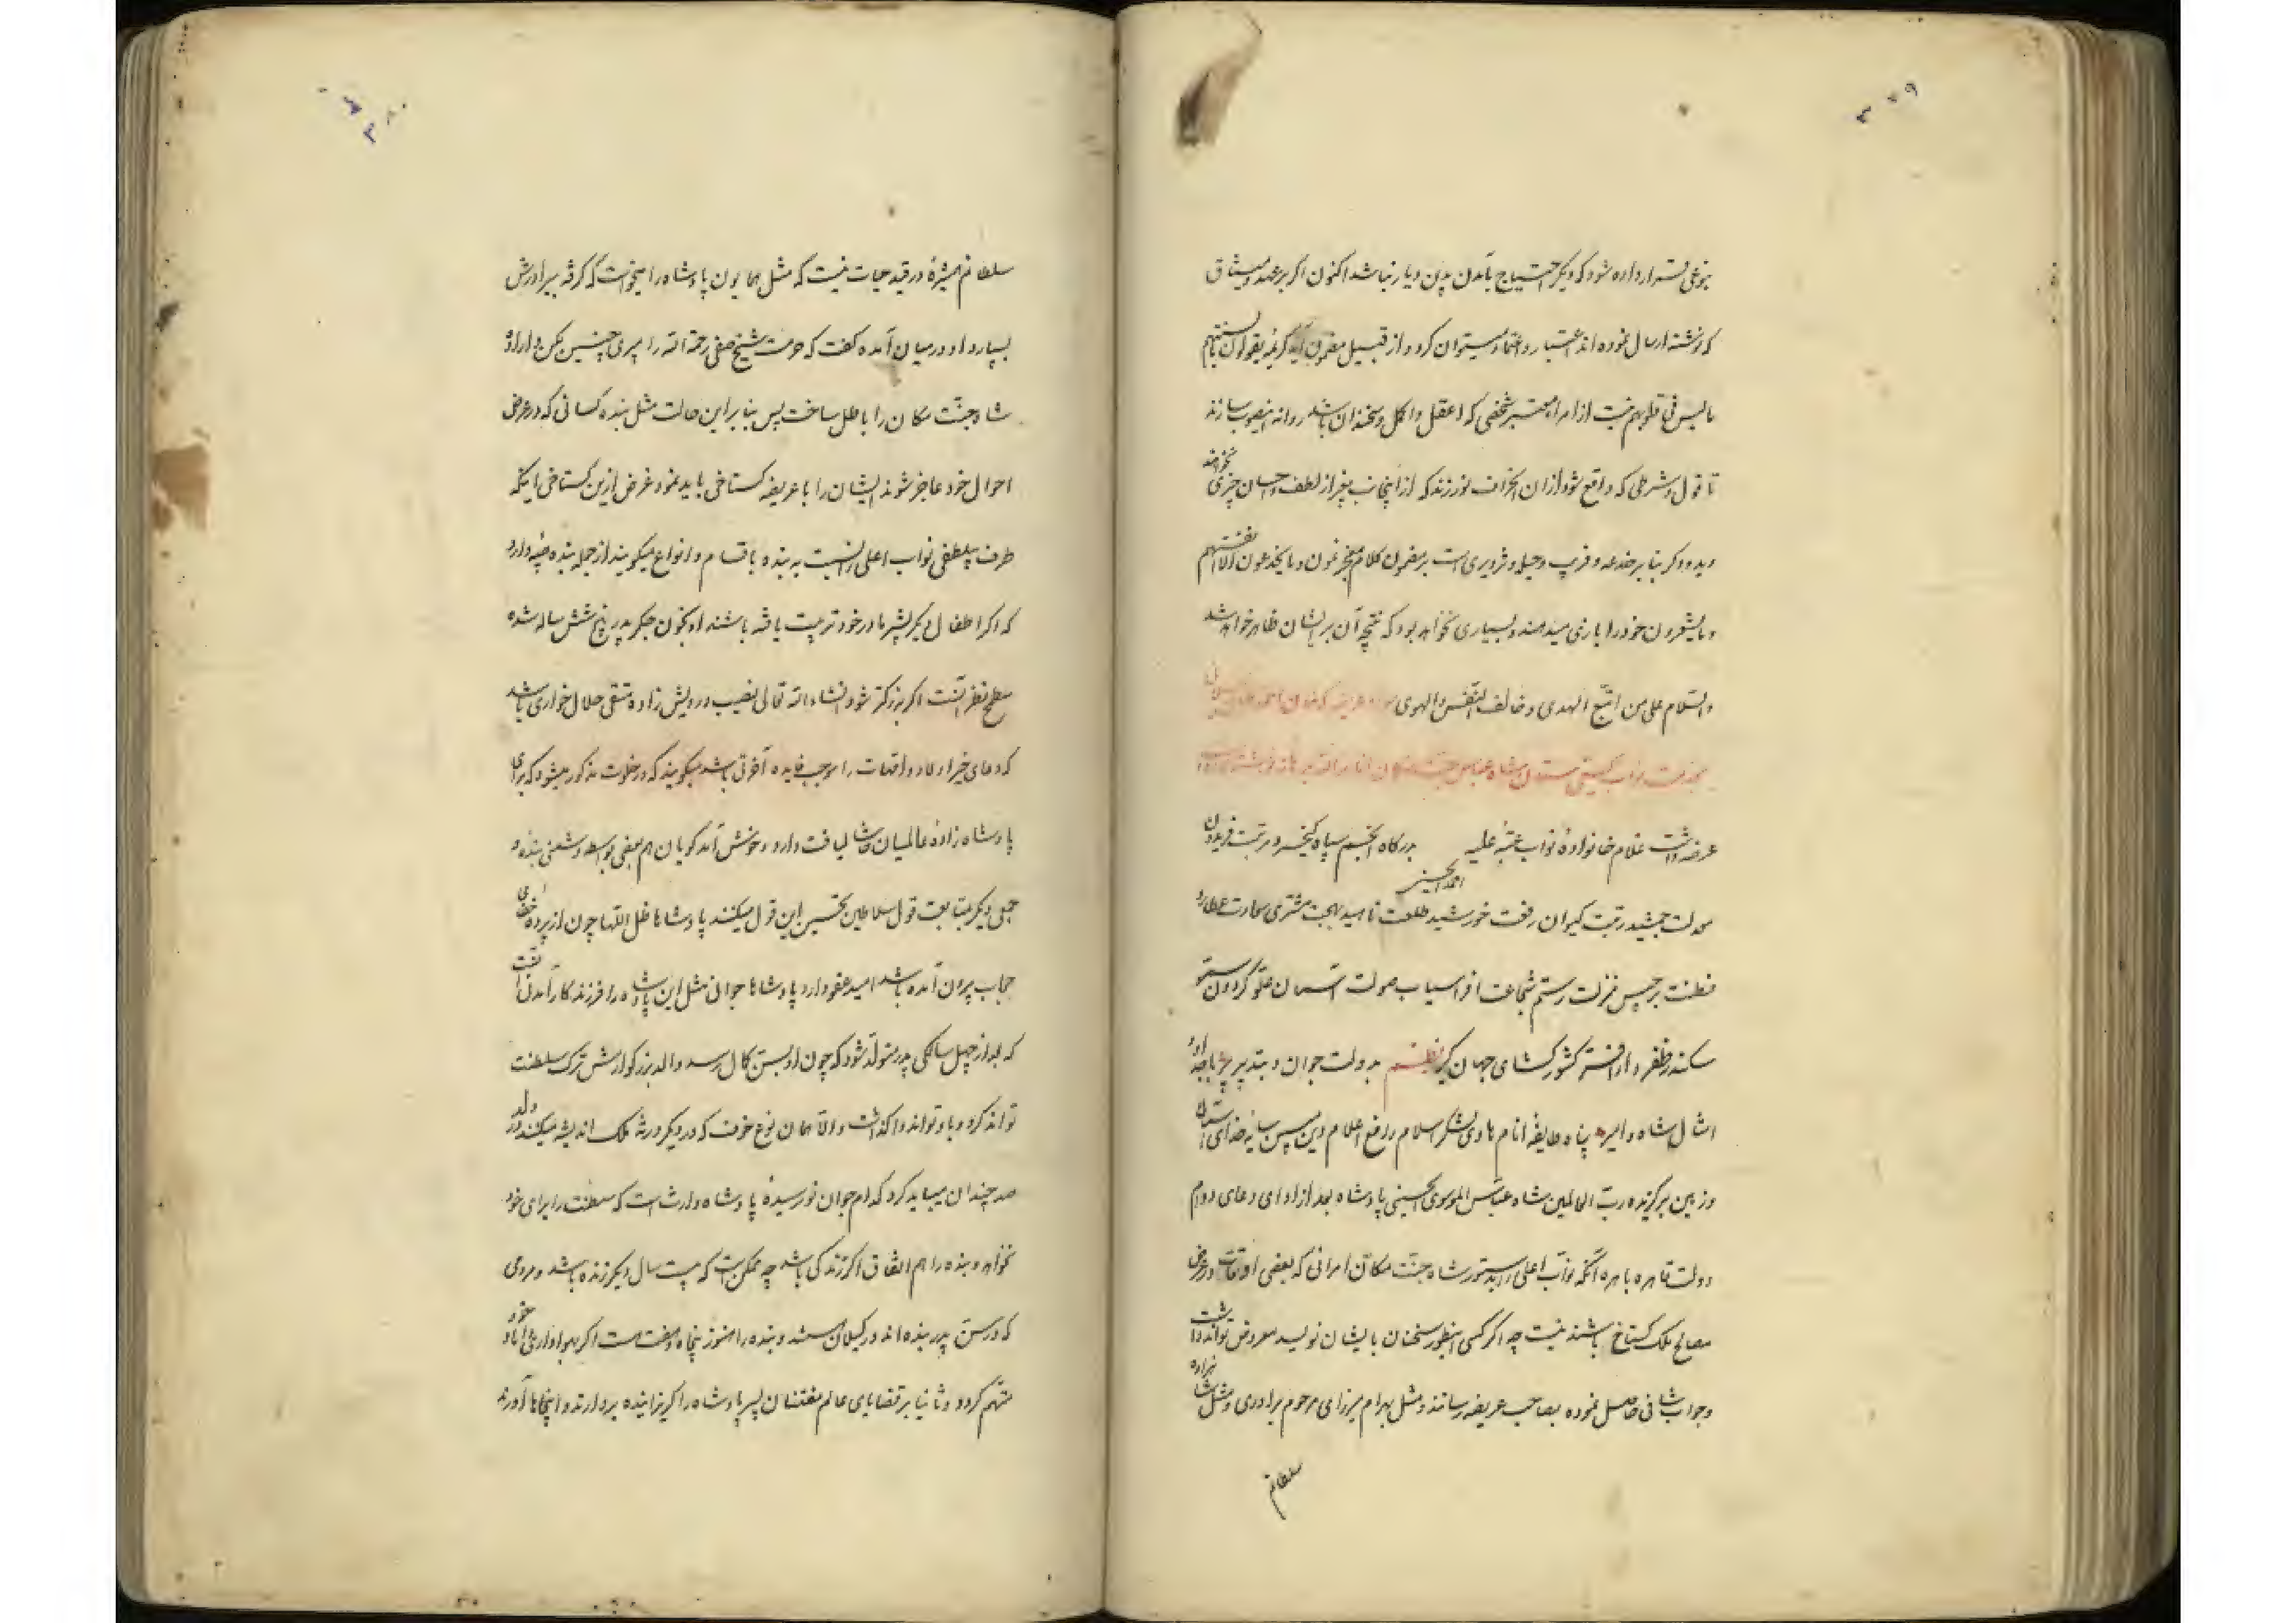 ۳۷۹
بنوعی قرار داده شود که دیگر احتیاج بآمدن بدین دیار نباشد اکنون اگر بر عهد و میثاق
که نوشته ارسال نموده اند اعتبار و اعتماد میتوان کرد و از قبیل مضمون آیه کریمه یقولون بالسنتهم
ما لیس فی قلوبهم نیست از امراء معتبر شخصی که اعقل و اکمل و سخندان باشد روانه اینصوب سازند
تا قول و شرطی که واقع شود از ان انحراف نورزند که از اینجانب بغیر از لطف و احسان چیزی نخواهند
دید و اگر بنا بر خدعه و فریب و حیله و تزویری است بر مضمون کلام معجز نمون و ما یخدعون الا انفسهم
و ما یشعرون خود را بازی میدهند و بسیاری نخواهد بود که نتیجه آن بر ایشان ظاهر خواهد شد
والسلام علی من اتبع الهدی و خالف النفس والهوی عریضه که خان احمد
بخدمت نواب گیتی ستان شاه عباس جنت مکان انار الله برهانه نوشته
عرضه داشت غلام خانواده نواب عتبه علیه بدرگاه انجم سپاه کیخسرو مرتبت فریدون
احمد الحسینی
معدلت جمشید رتبت کیوان رفعت خورشید طلعت ناهید بهجت مشتری سعادت عطارد
فطنت برجیس منزلت رستم شجاعت افراسیاب صولت آسمان علو گردون سمو
سکندر ظفر دارا افسر کشور گشای جهان گیر نظم بدولت جوان و بتدبیر پیر
امثال شاه و امیر پناه طایفه انام هادی لشکر اسلام رافع اعلام دین مبین سایه خدای آسمان
و زمین برگزیده رب العالمین شاه عباس الموسوی الحسینی پادشاه بعد از ادای دعای دوام
دولت قاهره باهره آنکه نواب اعلی را بدستور شاه جنت مکان امرائی که بعضی اوقات در عرض
مصالح ملک گستاخ باشند نیست چه اگر کسی اینطور سخنان بایشان نویسد معروض تواند داشت
و جواب شافی حاصل نموده بصاحب عریضه رسانند و مثل بهرام میرزای مرحوم برادری و مثل شاهزاده
سلطانم
۳۸۰
سلطانم همشیره در قید حیات نیست که مثل همایون پادشاه را میخواست که گرفته ببرادرش
بسپارد او در میان آمده گفت که حرمت شیخ صفی رحمة الله را مبری چنین مکن و اراده
شاه جنت مکان را باطل ساخت پس بنا بر این حالت مثل بنده کسانی که در عرض
احوال خود عاجز شوند ایشان را با عریضه گستاخی باید نمود غرض ازین گستاخی اینکه
طرف بیلطفی نواب اعلی را نسبت به بنده باقسام و انواع میگویند از جمله بنده صبیه دارد
که اگر اطفال دیگر بشیر مادر خود تربیت یافته باشند او بخون جگر پدر پنج شش ساله شده
مطمح نظر آنست اگر بزرگتر شود انشاء الله تعالی نصیب درویش زاده متقی حلال خواری باشد
که دعای خیر اولاد و اقعات را موجب فایده آخرتی باشد میگویند که در خلوت مذکور میشود که برای
پادشاه زاده عالمیان لیاقت دارد و خوش آمد گویان هم بعضی بواسطه دشمنی بنده و
جمعی دیگر بمتابعت قول سلاطین تحسین این قول میکنند پادشاها ظل اللها چون از پرده خفای
حجاب بیرون آمده باشد امید عفو دارد پادشاها جوانی مثل این پادشاه را فرزند کار آمدنی آنست
که بعد از چهل سالگی پدر متولد شود که چون او بسن کمال رسد والد بزرگوارش ترک سلطنت
تواند کرد و باو تواند واگذاشت والا همان نوع خوف که در دیگر ورثه ملک اندیشه میکنند در ولد
صد چندان میباید کرد کدام جوان نورسیده پادشاه وارث است که سلطنت را برای خود
نخواهد و بنده را هم اتفاق اگر زندگی باشد چه ممکن است که بیست سال دیگر زنده باشد و مردمی
که در سن پدر بنده اند در گیلان هستند و بنده را هنوز پنجاه و هفت است اگر بهواداری داماد خود
متهم گردد و ثانیا بر قضایای عالم مفتنان پسر پادشاه را گریزانیده بردارند و اینجاها آورند